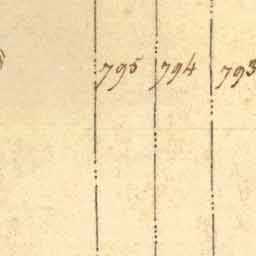 795 794 793